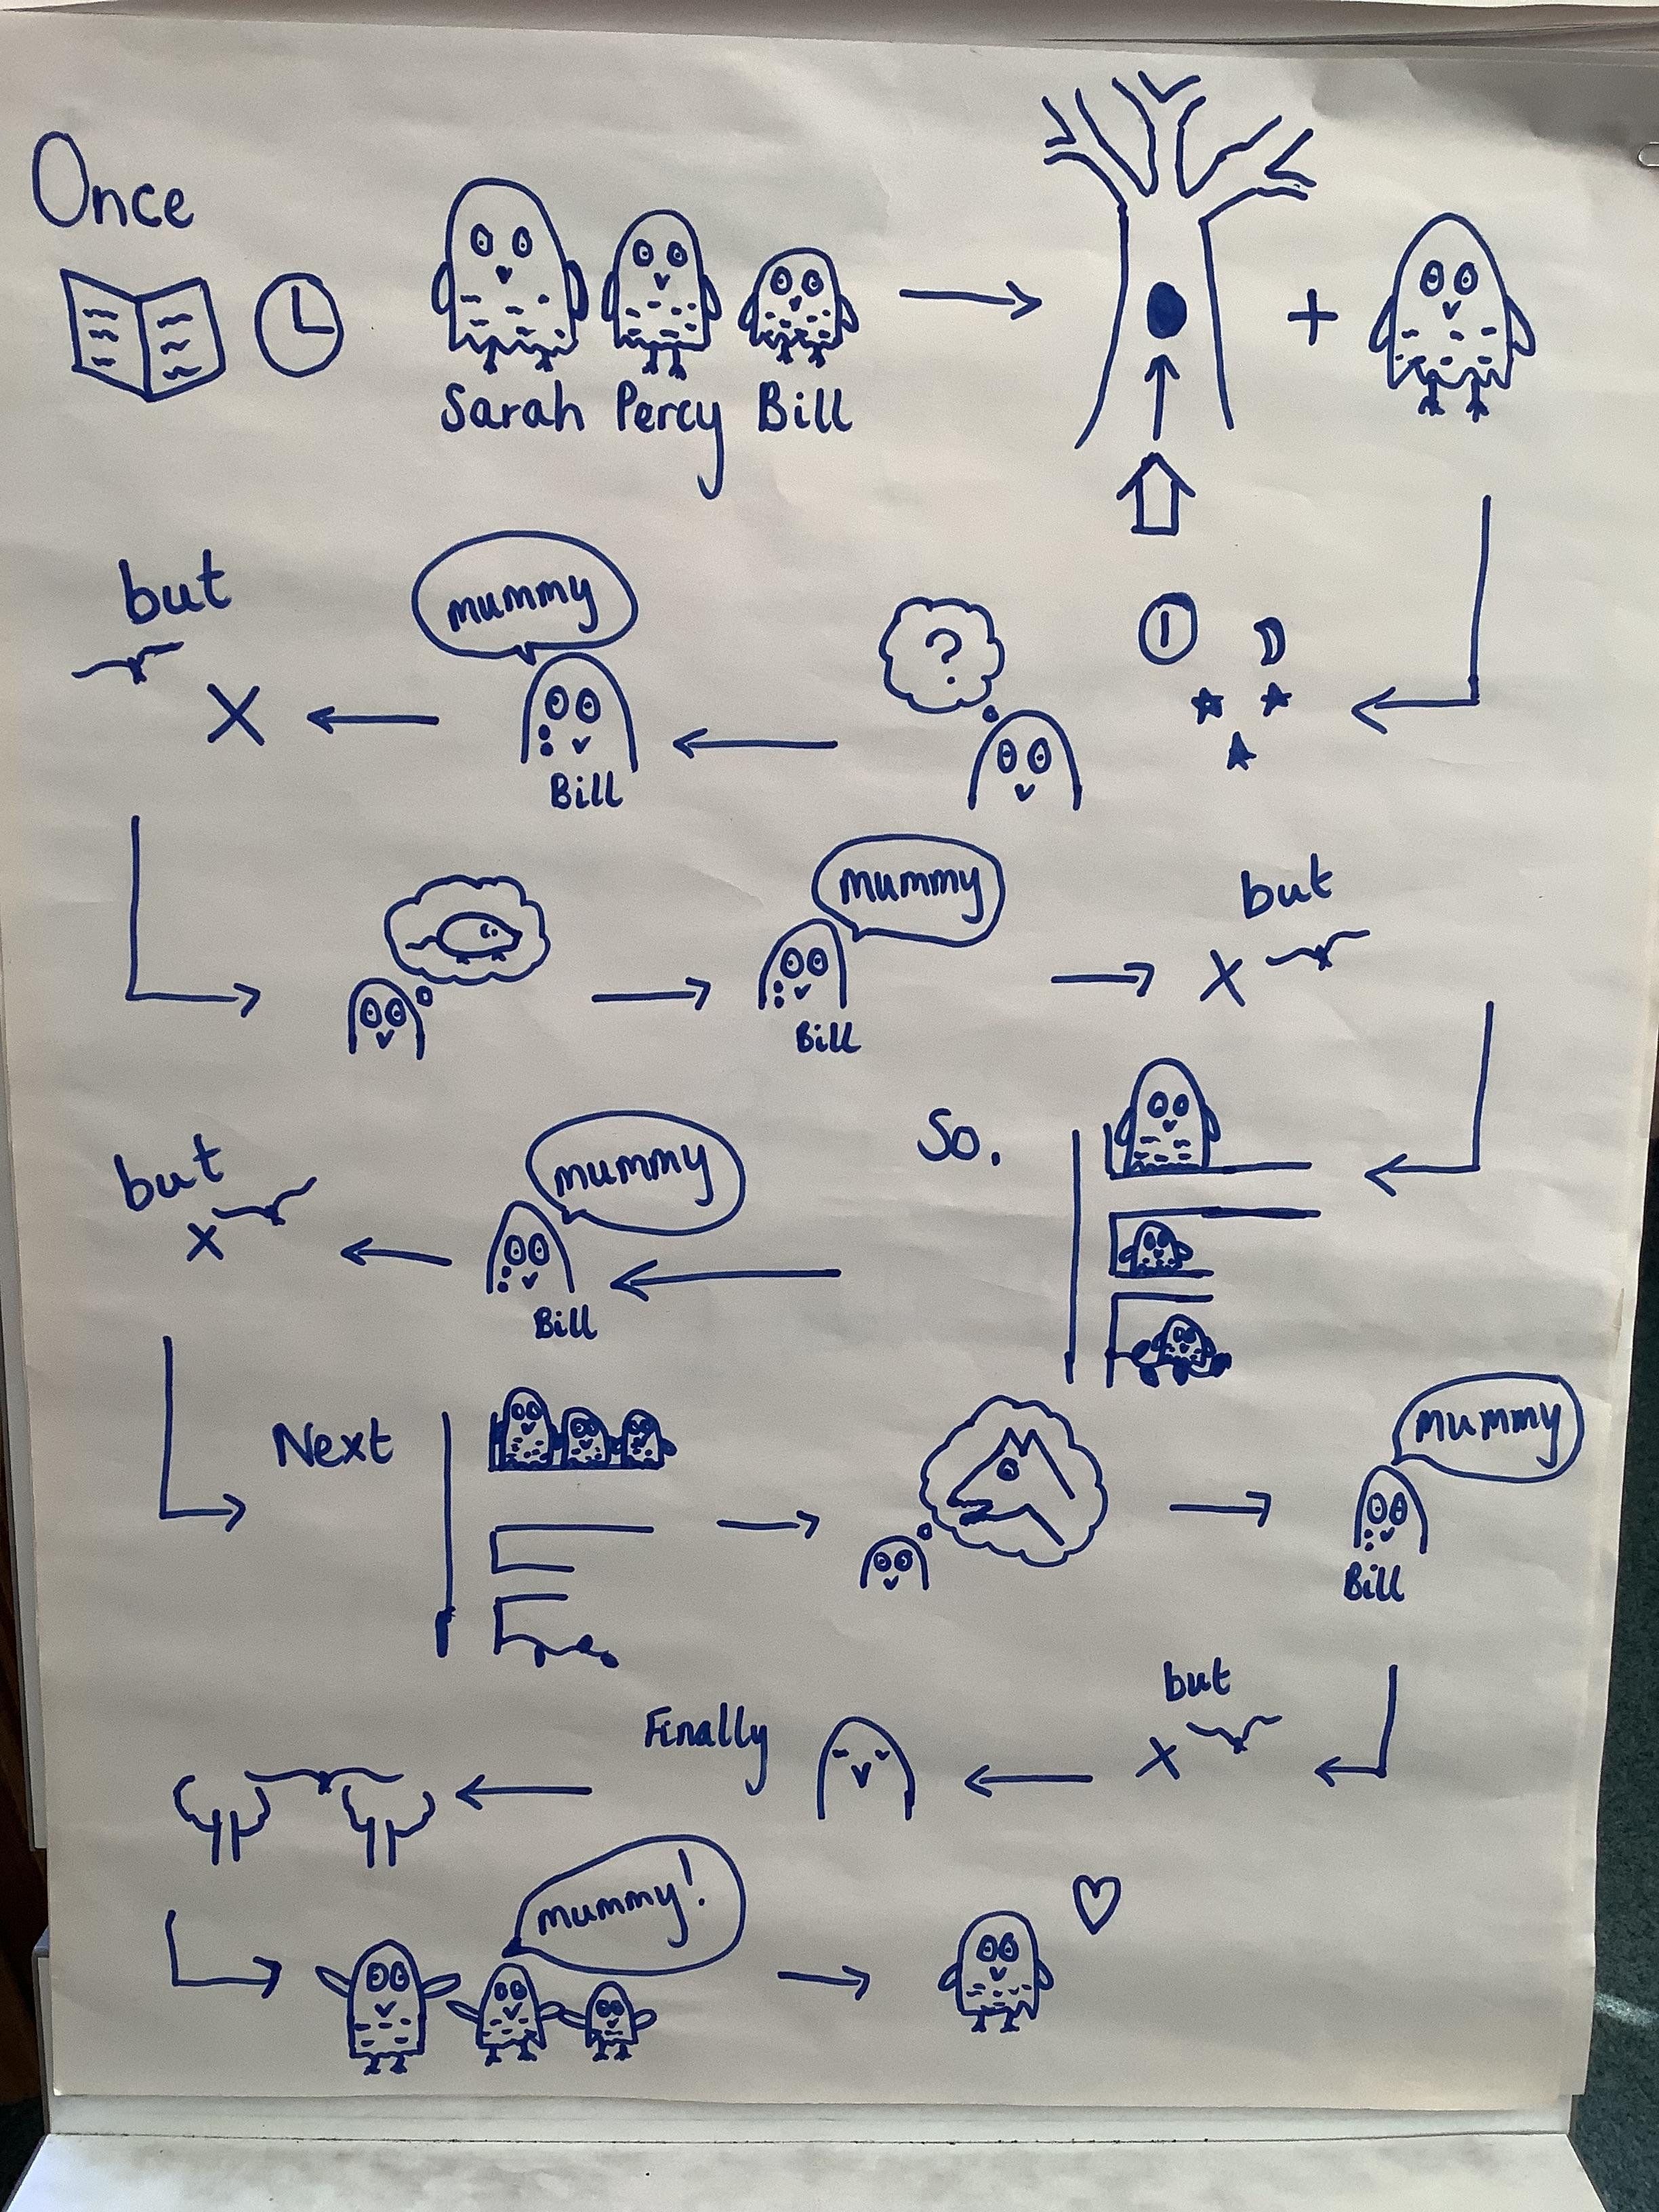 Once
Sarah Percy Bill
but
mummy
?
1
Bill
mummy
but
Bill
So.
mummy
but
Bill
Next
mummy
Bill
but
Finally
mummy!